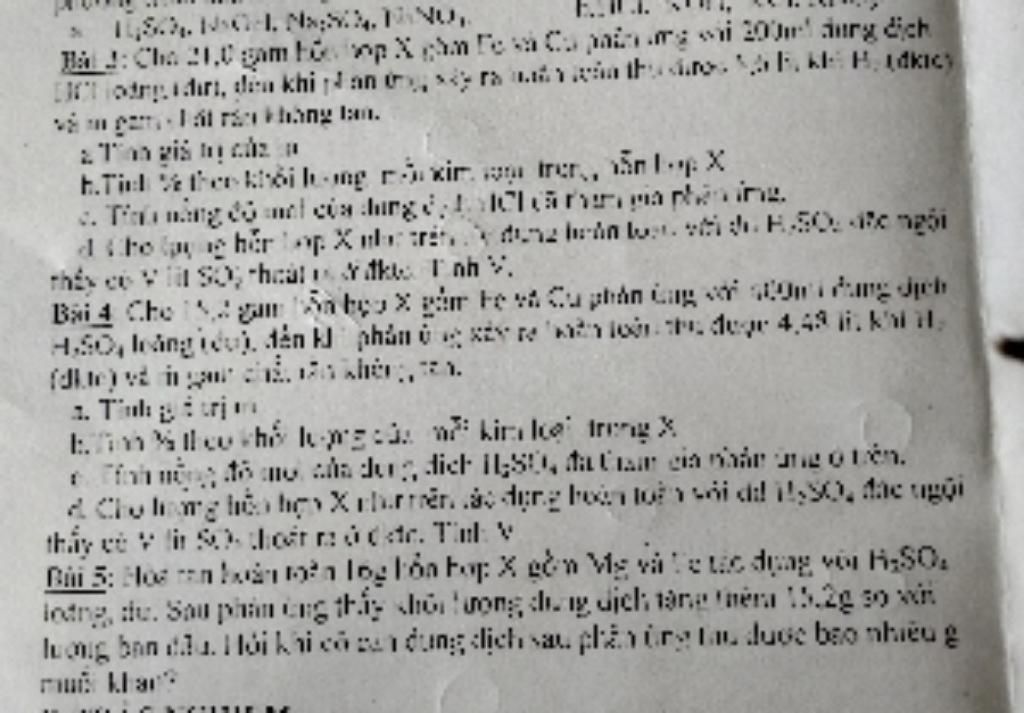 a. H₂SO₄, NaOH, Na₂SO₄, NaNO₃.
Bài 3: Cho 21,0 gam hỗn hợp X gồm Fe và Cu phản ứng với 200ml dung dịch
HCl loãng (dư), đến khi phản ứng xảy ra hoàn toàn thu được lít khí H₂ (đktc)
và m gam chất rắn không tan.
a. Tính giá trị của m
b. Tính % theo khối lượng mỗi kim loại trong hỗn hợp X
c. Tính nồng độ mol của dung dịch HCl đã tham gia phản ứng.
d. Cho lượng hỗn hợp X như trên tác dụng hoàn toàn với dd H₂SO₄ đặc nguội
thấy có V lít SO₂ thoát ra ở đktc. Tính V.
Bài 4: Cho 15,2 gam hỗn hợp X gồm Fe và Cu phản ứng với dung dịch
H₂SO₄ loãng (dư), đến khi phản ứng xảy ra hoàn toàn thu được 4,48 lít khí H₂
(đktc) và m gam chất rắn không tan.
a. Tính giá trị m
b. Tính % theo khối lượng của mỗi kim loại trong X
c. Tính nồng độ mol của dung dịch H₂SO₄ đã tham gia phản ứng ở trên.
d. Cho lượng hỗn hợp X như trên tác dụng hoàn toàn với dd H₂SO₄ đặc nguội
thấy có V lít SO₂ thoát ra ở đktc. Tính V
Bài 5: Hòa tan hoàn toàn 16g hỗn hợp X gồm Mg và Fe tác dụng với H₂SO₄
loãng, dư. Sau phản ứng thấy khối lượng dung dịch tăng thêm 15,2g so với
lượng ban đầu. Hỏi khi cô cạn dung dịch sau phản ứng thu được bao nhiêu g
muối khan?